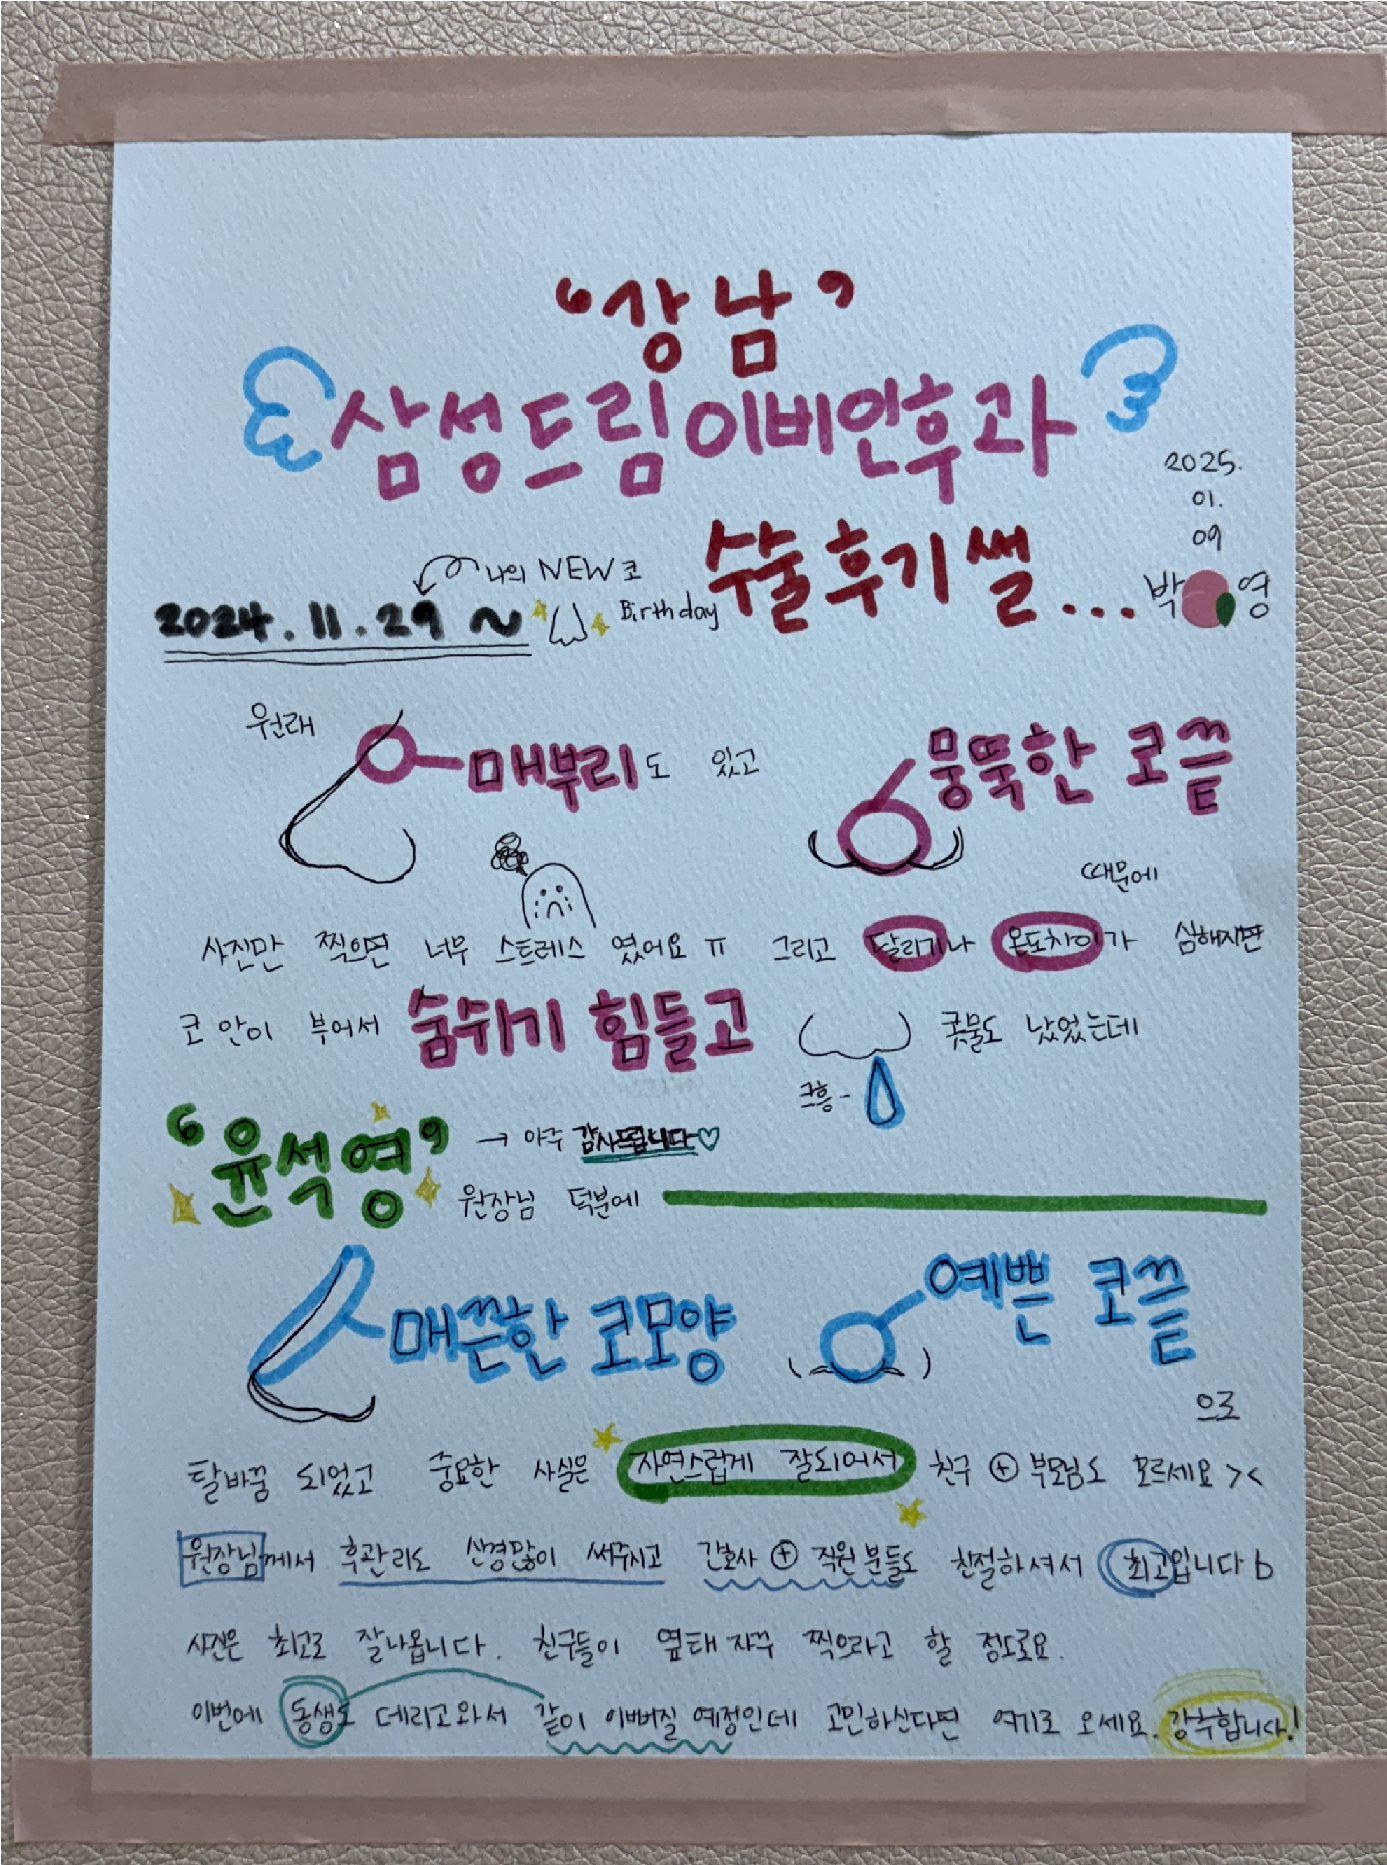 "강남"
삼성드림이비인후과
수술후기 썰...
2025.
01.
09
박 영
나의 NEW 코
2024.11.29 ~
Birthday
원래
매부리도 있고
뭉뚝한 코끝
때문에
사진만 찍으면 너무 스트레스 였어요 ㅠ 그리고 달리기나 온도차이가 심해지면
코 안이 부어서 숨쉬기 힘들고 콧물도 났었는데
크흥-
"윤석영" → 아주 감사드립니다♡
원장님 덕분에
매끈한 코모양
예쁜 코끝
으로
탈바꿈 되었고 중요한 사실은 자연스럽게 잘되어서 친구 ⊕ 부모님도 모르세요 ><
원장님께서 후관리도 신경많이 써주시고 간호사 ⊕ 직원 분들도 친절하셔서 최고입니다 b
사진은 최고로 잘나옵니다. 친구들이 옆태 자꾸 찍으라고 할 정도로요.
이번에 동생도 데리고와서 같이 이뻐질 예정인데 고민하신다면 여기로 오세요. 강추합니다!